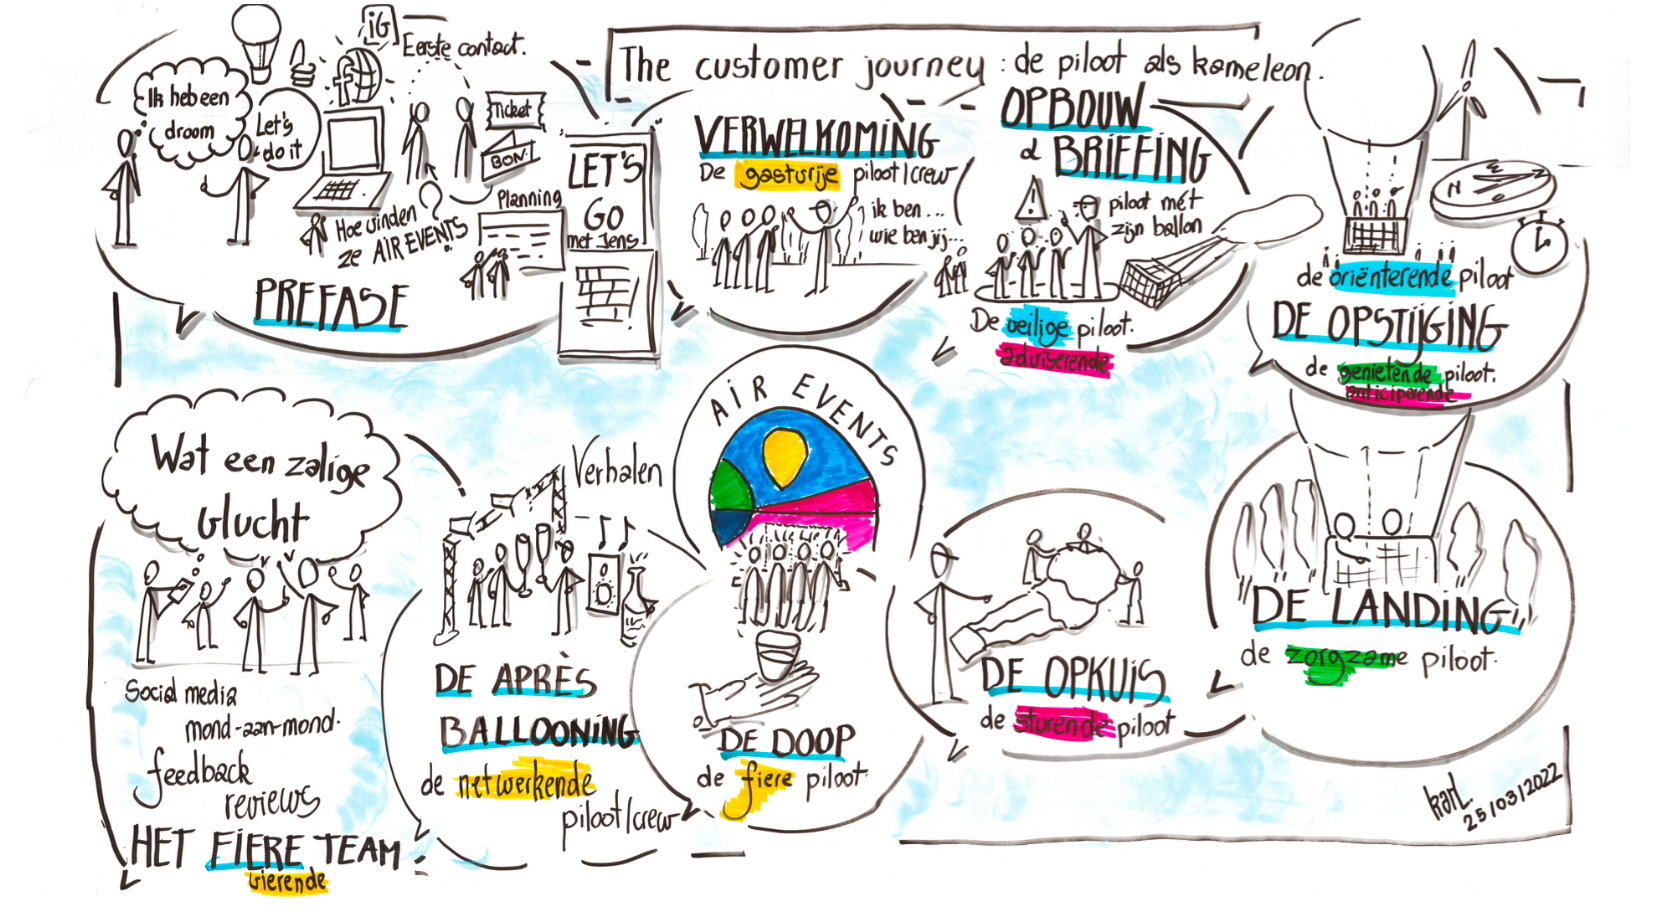 The customer journey : de piloot als kameleon.
iG
Eerste contact.
Ik heb een
droom
Let's
do it
f
Ticket
BON.
Hoe vinden
ze AIR EVENTS
?
Planning
LET'S
GO
met Jens!
PREFASE
VERWELKOMING
De gastvrije piloot/crew
ik ben...
wie ben jij...
OPBOUW
& BRIEFING
!
piloot mét
zijn ballon
De veilige piloot.
adviserende
N
de oriënterende piloot
DE OPSTIJGING
de genietende piloot.
anticiperende
DE LANDING
de zorgzame piloot.
DE OPKUIS
de sturende piloot
AIR EVENTS
DE DOOP
de fiere piloot.
Verhalen
DE APRÈS
BALLOONING
de netwerkende
piloot/crew
Wat een zalige
vlucht
Social media
mond-aan-mond.
feedback
reviews
HET FIERE TEAM
vierende
karl.
25/03/2022